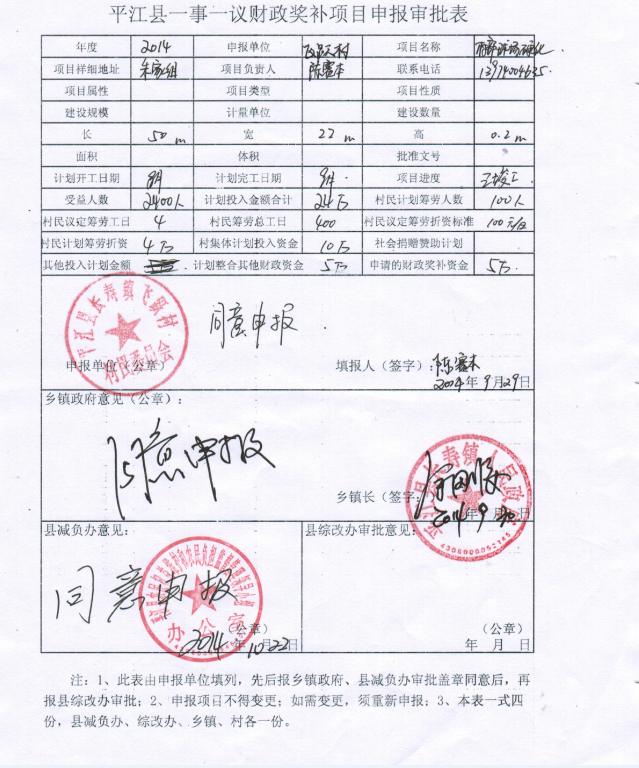 平江县一事一议财政奖补项目申报审批表
年度 2014 申报单位 飞跃村 项目名称
项目祥细地址 朱家组 项目负责人 陈塞本 联系电话
项目属性 项目类型 项目性质
建设规模 计量单位 建设数量
长 50 m 宽 22 m 高 0.2 m
面积 体积 批准文号
计划开工日期 8月 计划完工日期 9月 项目进度 已竣工
受益人数 2400人 计划投入金额合计 24万 村民计划筹劳人数 100人
村民议定筹劳工日 4 村民筹劳总工日 400 村民议定筹劳折资标准 100元/
村民计划筹劳折资 4万 村集体计划投入资金 10万 社会捐赠赞助计划
其他投入计划金额 计划整合其他财政资金 5万 申请的财政奖补资金 5万
平江县长寿镇飞跃村
村民委员会
同意申报
申报单位（公章） 填报人（签字）：陈塞本
2014年9月29日
乡镇政府意见（公章）：
同意申报
平江县长寿镇人民政府
乡镇长（签字
2014年9月30日
4306000052145
县减负办意见： 县综改办审批意见：
同意申报
办公室
（公章） （公章）
2014年10月22日 年 月 日
注：1、此表由申报单位填列，先后报乡镇政府、县减负办审批盖章同意后，再
报县综改办审批；2、申报项目不得变更；如需变更，须重新申报；3、本表一式四
份，县减负办、综改办、乡镇、村各一份。